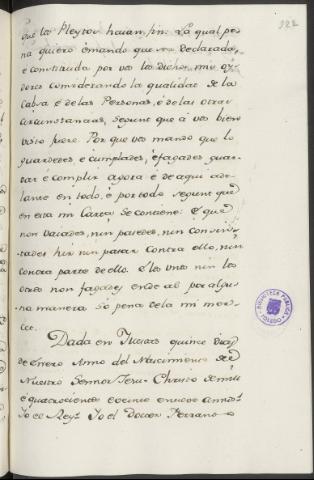 322
que los Pleytos haian fin. La qual pe
na quiero è mando que sea declarada,
è constituida por vos los dichos mis oy
dores considerando la qualidad de la
Cabsa è de las Personas, è de las otras
circunstancias, segunt que à vos bien
visto fuere. Por que vos mando que lo
guardedes è cumplades, è fagades guar
dar è complir agora è de aqui ade
lante en todo, è por todo segunt que
en esta mi Carta se contiene: È que
non vaiades, nin pasedes, nin consin
tades hir nin pasar contra ello, nin
contra parte de ello. È los unos nin los
otros non fagades ende al por algu
na manera so pena de la mi mer
ced.
Dada en Illescas quince dias
de Enero Anno del Nascimiento de
Nuestro Sennor Jesu-Christo de mill
è quatrocientos è veinte è nueve annos.
Yo el Rey. Yo el Doctor Ferrando
BIBLIOTECA PUBLICA
TOLEDO